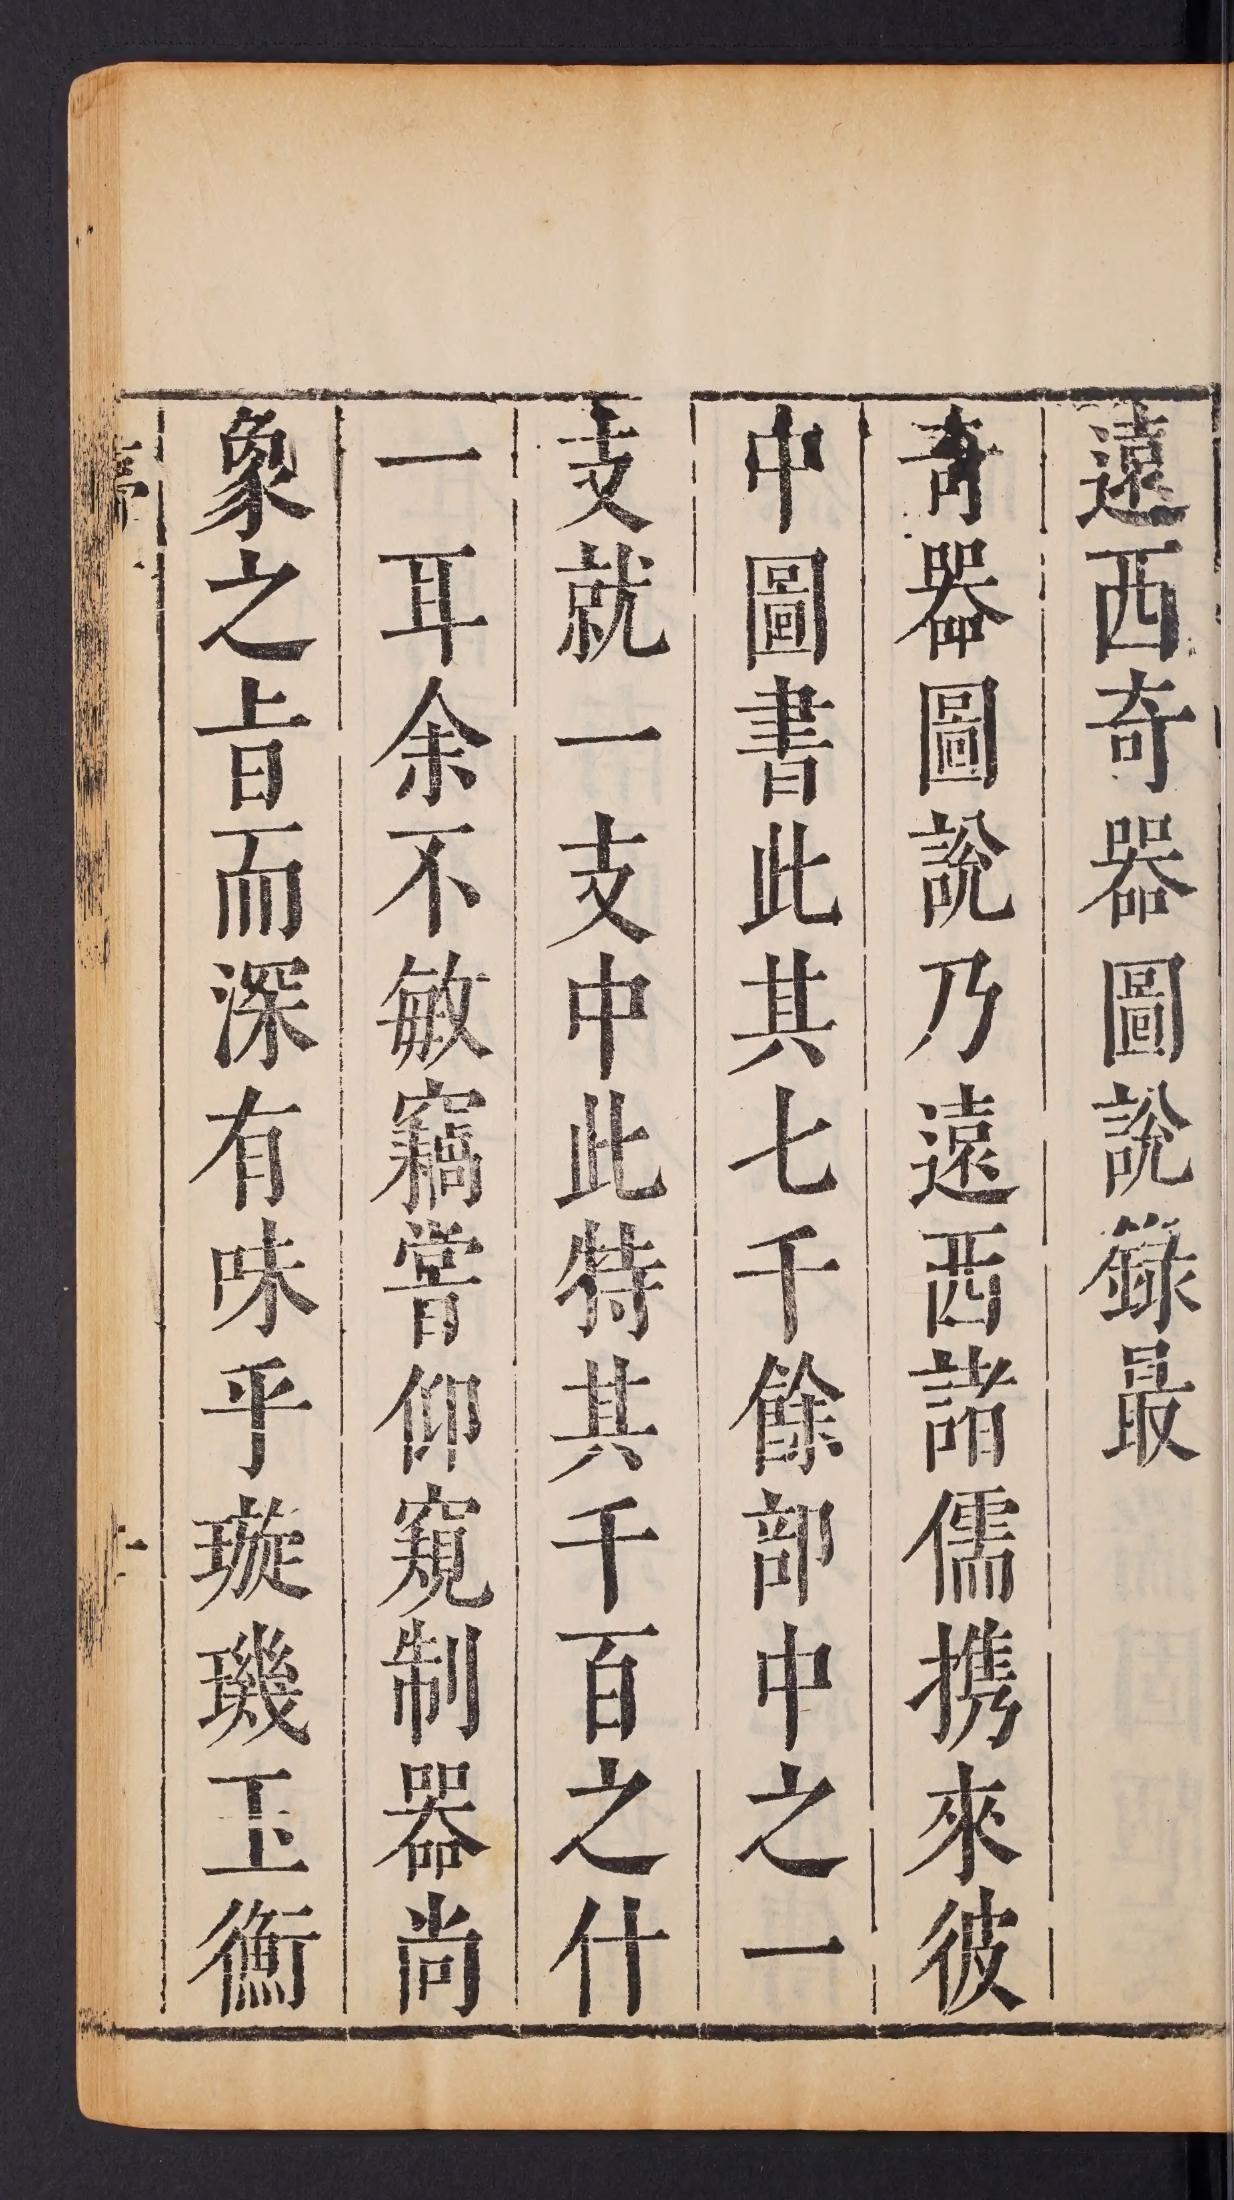 遠西奇器圖說錄最
奇器圖說乃遠西諸儒携來彼
中圖書此其七千餘部中之一
支就一支中此特其千百之什
一耳余不敏竊嘗仰窺制器尚
象之旨而深有味乎璇璣玉衡